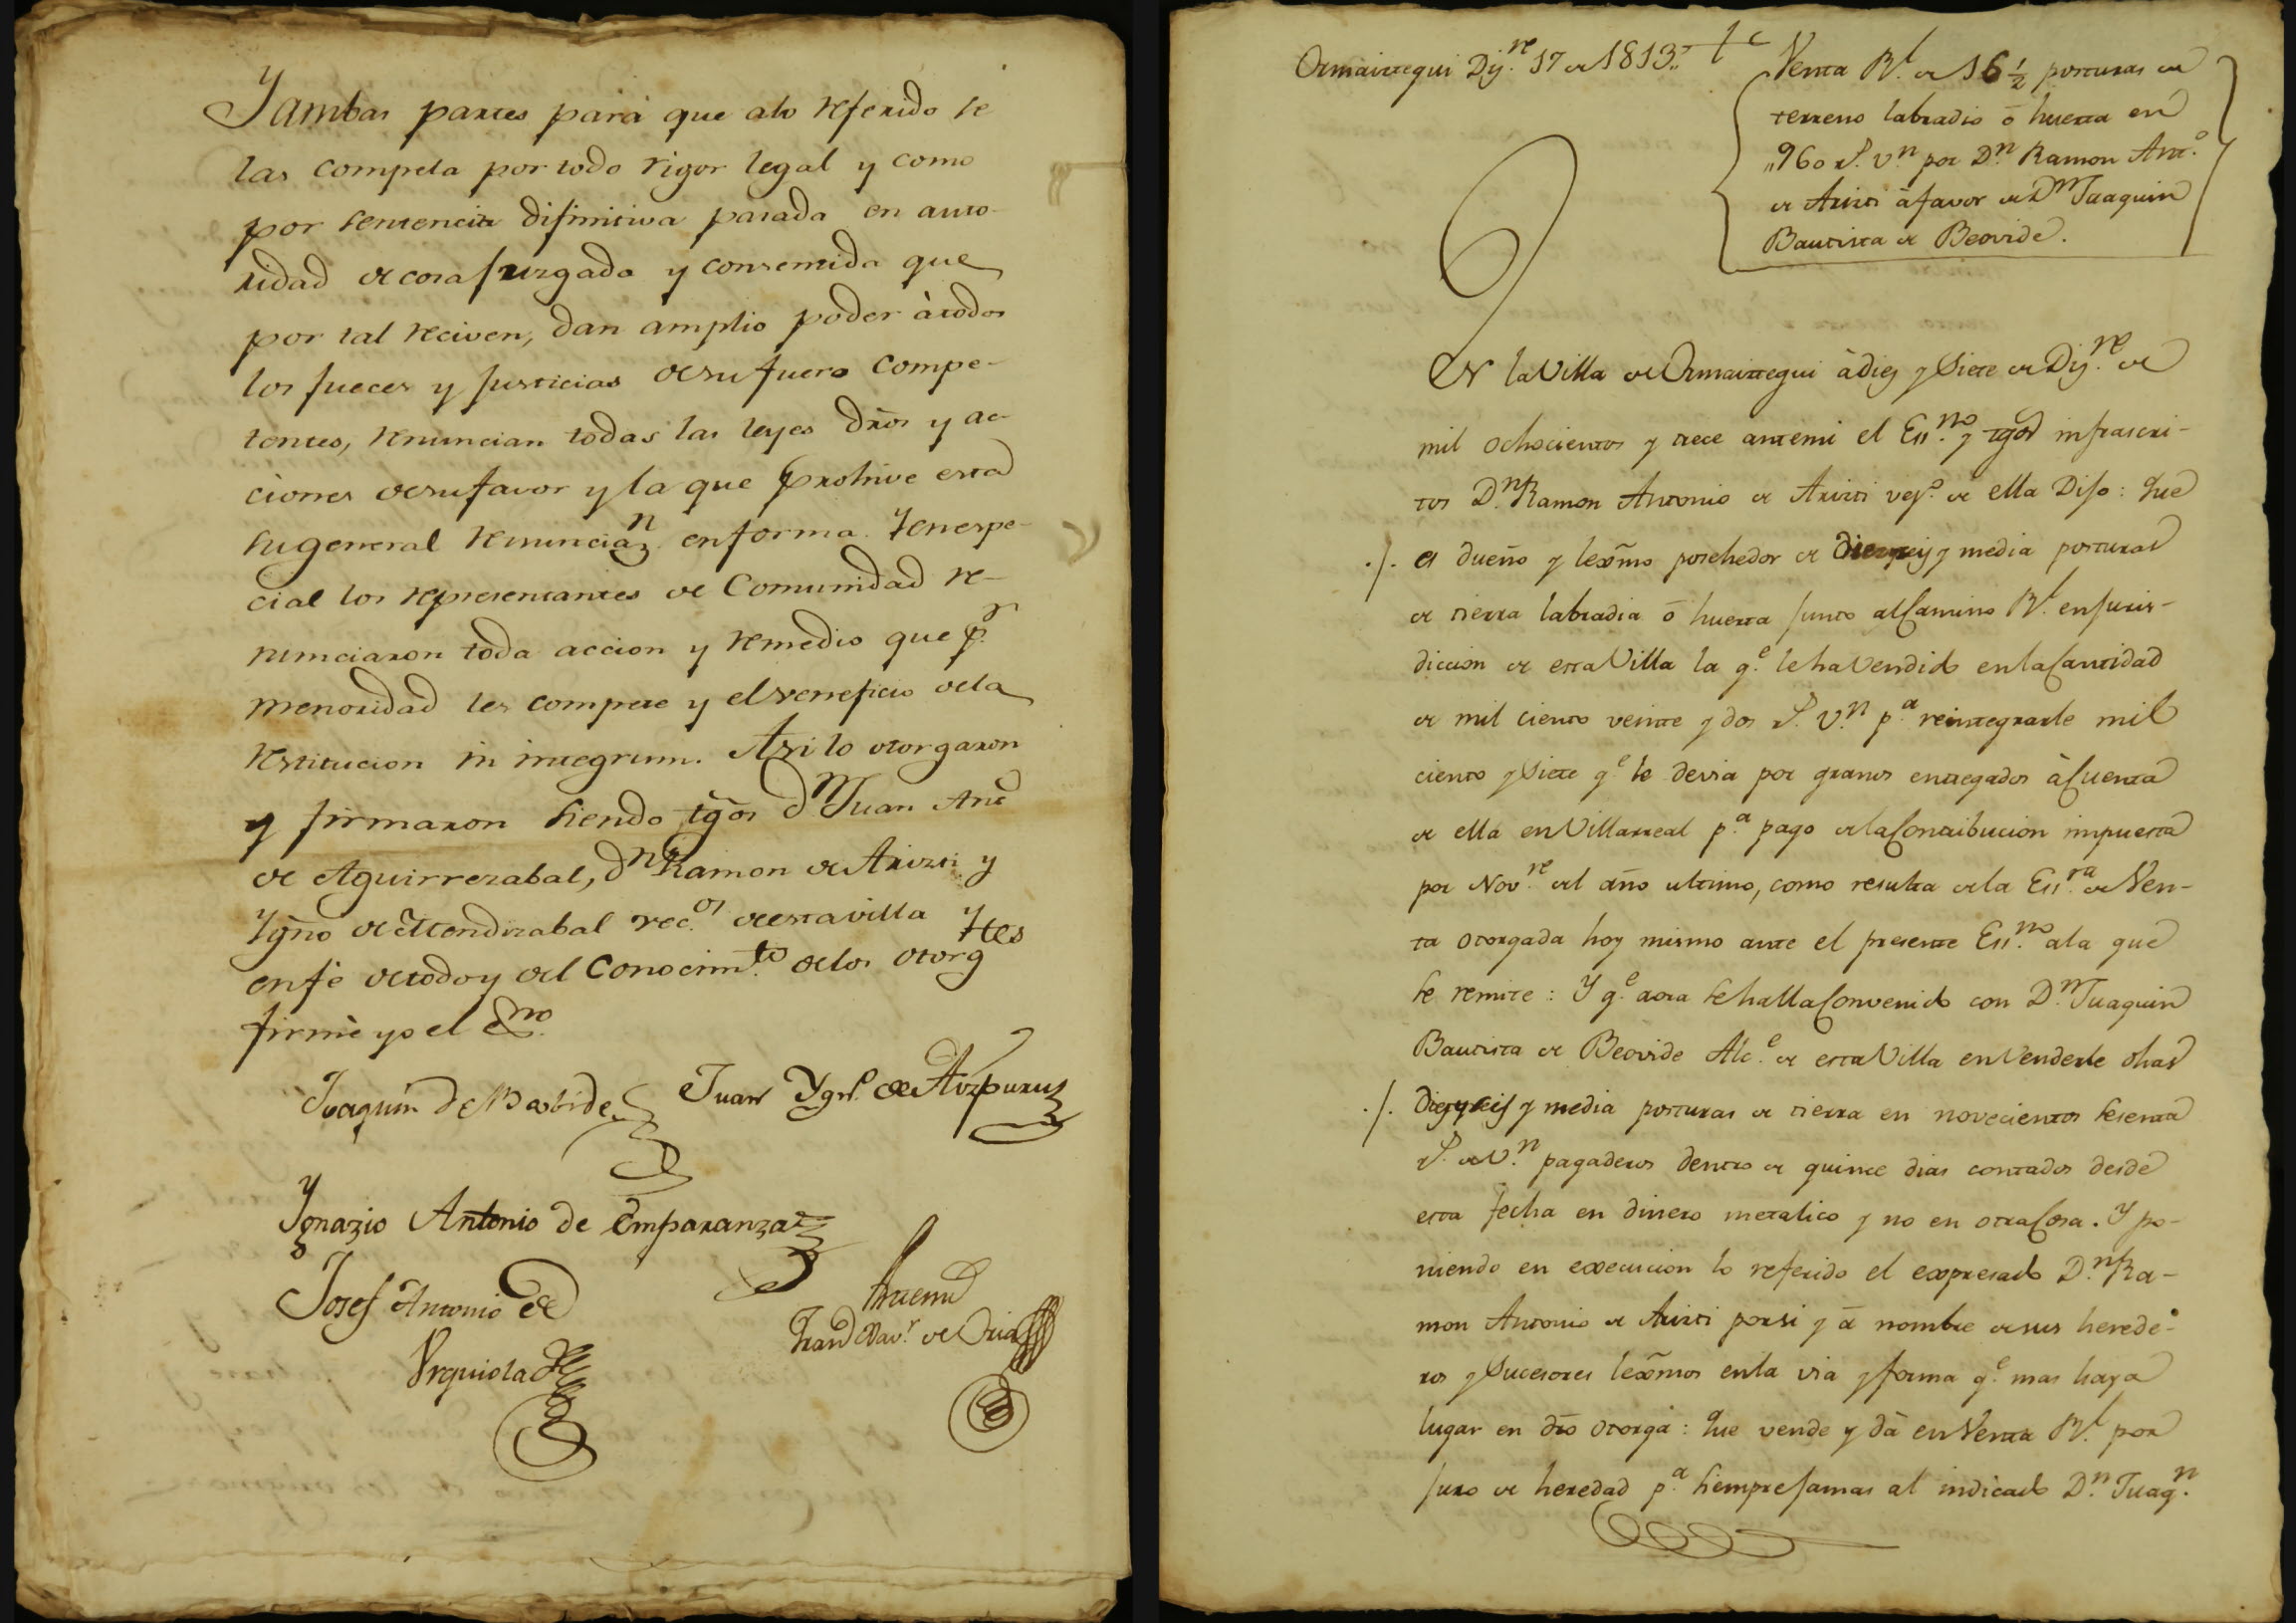 Y ambas partes para que alo referido se
las compela por todo rigor legal y como
por sentencia difinitiva pasada en auto-
ridad de cosa juzgada y consentida que
por tal reciven, dan amplio poder à todos
los jueces y justicias de su fuero compe-
tentes, renuncian todas las leyes dr̃os y ac-
ciones de su favor y la que prohive esta
su general renunciaz.n en forma. Y en espe-
cial los representantes de Comunidad re-
nunciaron toda accion y remedio que p.r
menoridad les compete y el veneficio de la
restitucion in integrum. Asi lo otorgaron
y firmaron siendo tg̃os D.n Juan Ant.o
de Aguirrezabal, d.n Ramon de Arizti y
Ygño de Mendizabal vec.os de esta villa Y
en fé de todo y del conocim.to de los otorg.tes
firmè yo el E.no
Joaquin de Beobide Juan Ygn.o de Aizpuru
Ygnazio Antonio de Emparanza
Josef Antonio de
Urquiola
Ante mi
Fran.co Xav.r de Oria
Ormaiztegui Diz.re 17 de 1813.,
Venta R.l de 16 ½ posturas de
terreno labradio ó huerta en
„960 r.s v.n por D.n Ramon Ant.o
de Arizti à favor de D.n Juaquin
Bautista de Beovide.
En la Villa de Ormaiztegui à diez y Siete de Diz.re de
mil ochocientos y trece ante mi el Ess.no y tgos infrascri-
tos D.n Ramon Antonio de Arizti vez.o de ella Dijo: Que
./. es dueño y lex̃mo posehedor de diez y seis y media posturas
de tierra labradia ó huerta junto al Camino R.l en juris-
diccion de esta Villa la q.e le ha Vendido en la Cantidad
de mil ciento veinte y dos r.s v.n p.a reintegrarle mil
ciento y Siete q.e le devia por granos entregados à Cuenta
de ella en Villarreal p.a pago de la Contribucion impuesta
por Nov.re del año ultimo, como resulta de la Ess.ra de Ven-
ta otorgada hoy mismo ante el presente Ess.no ala que
se remite: Y q.e aora se halla Convenido con D.n Juaquin
Bautista de Beovide Alc.e de esta Villa en Venderle dhas
./. diez y seis y media posturas de tierra en novecientos sesenta
r.s de v.n pagaderos dentro de quince dias contados desde
esta fecha en dinero metalico y no en otra Cosa. Y po-
niendo en execucion lo referido el expresado D.n Ra-
mon Antonio de Arizti por si y à nombre de sus herede-
ros y Sucesores lex̃mos en la via y forma q.e mas haya
lugar en dr̃o otorga: Que vende y dà en Venta R.l por
juro de heredad p.a siempre jamas al indicado D.n Juaq.n